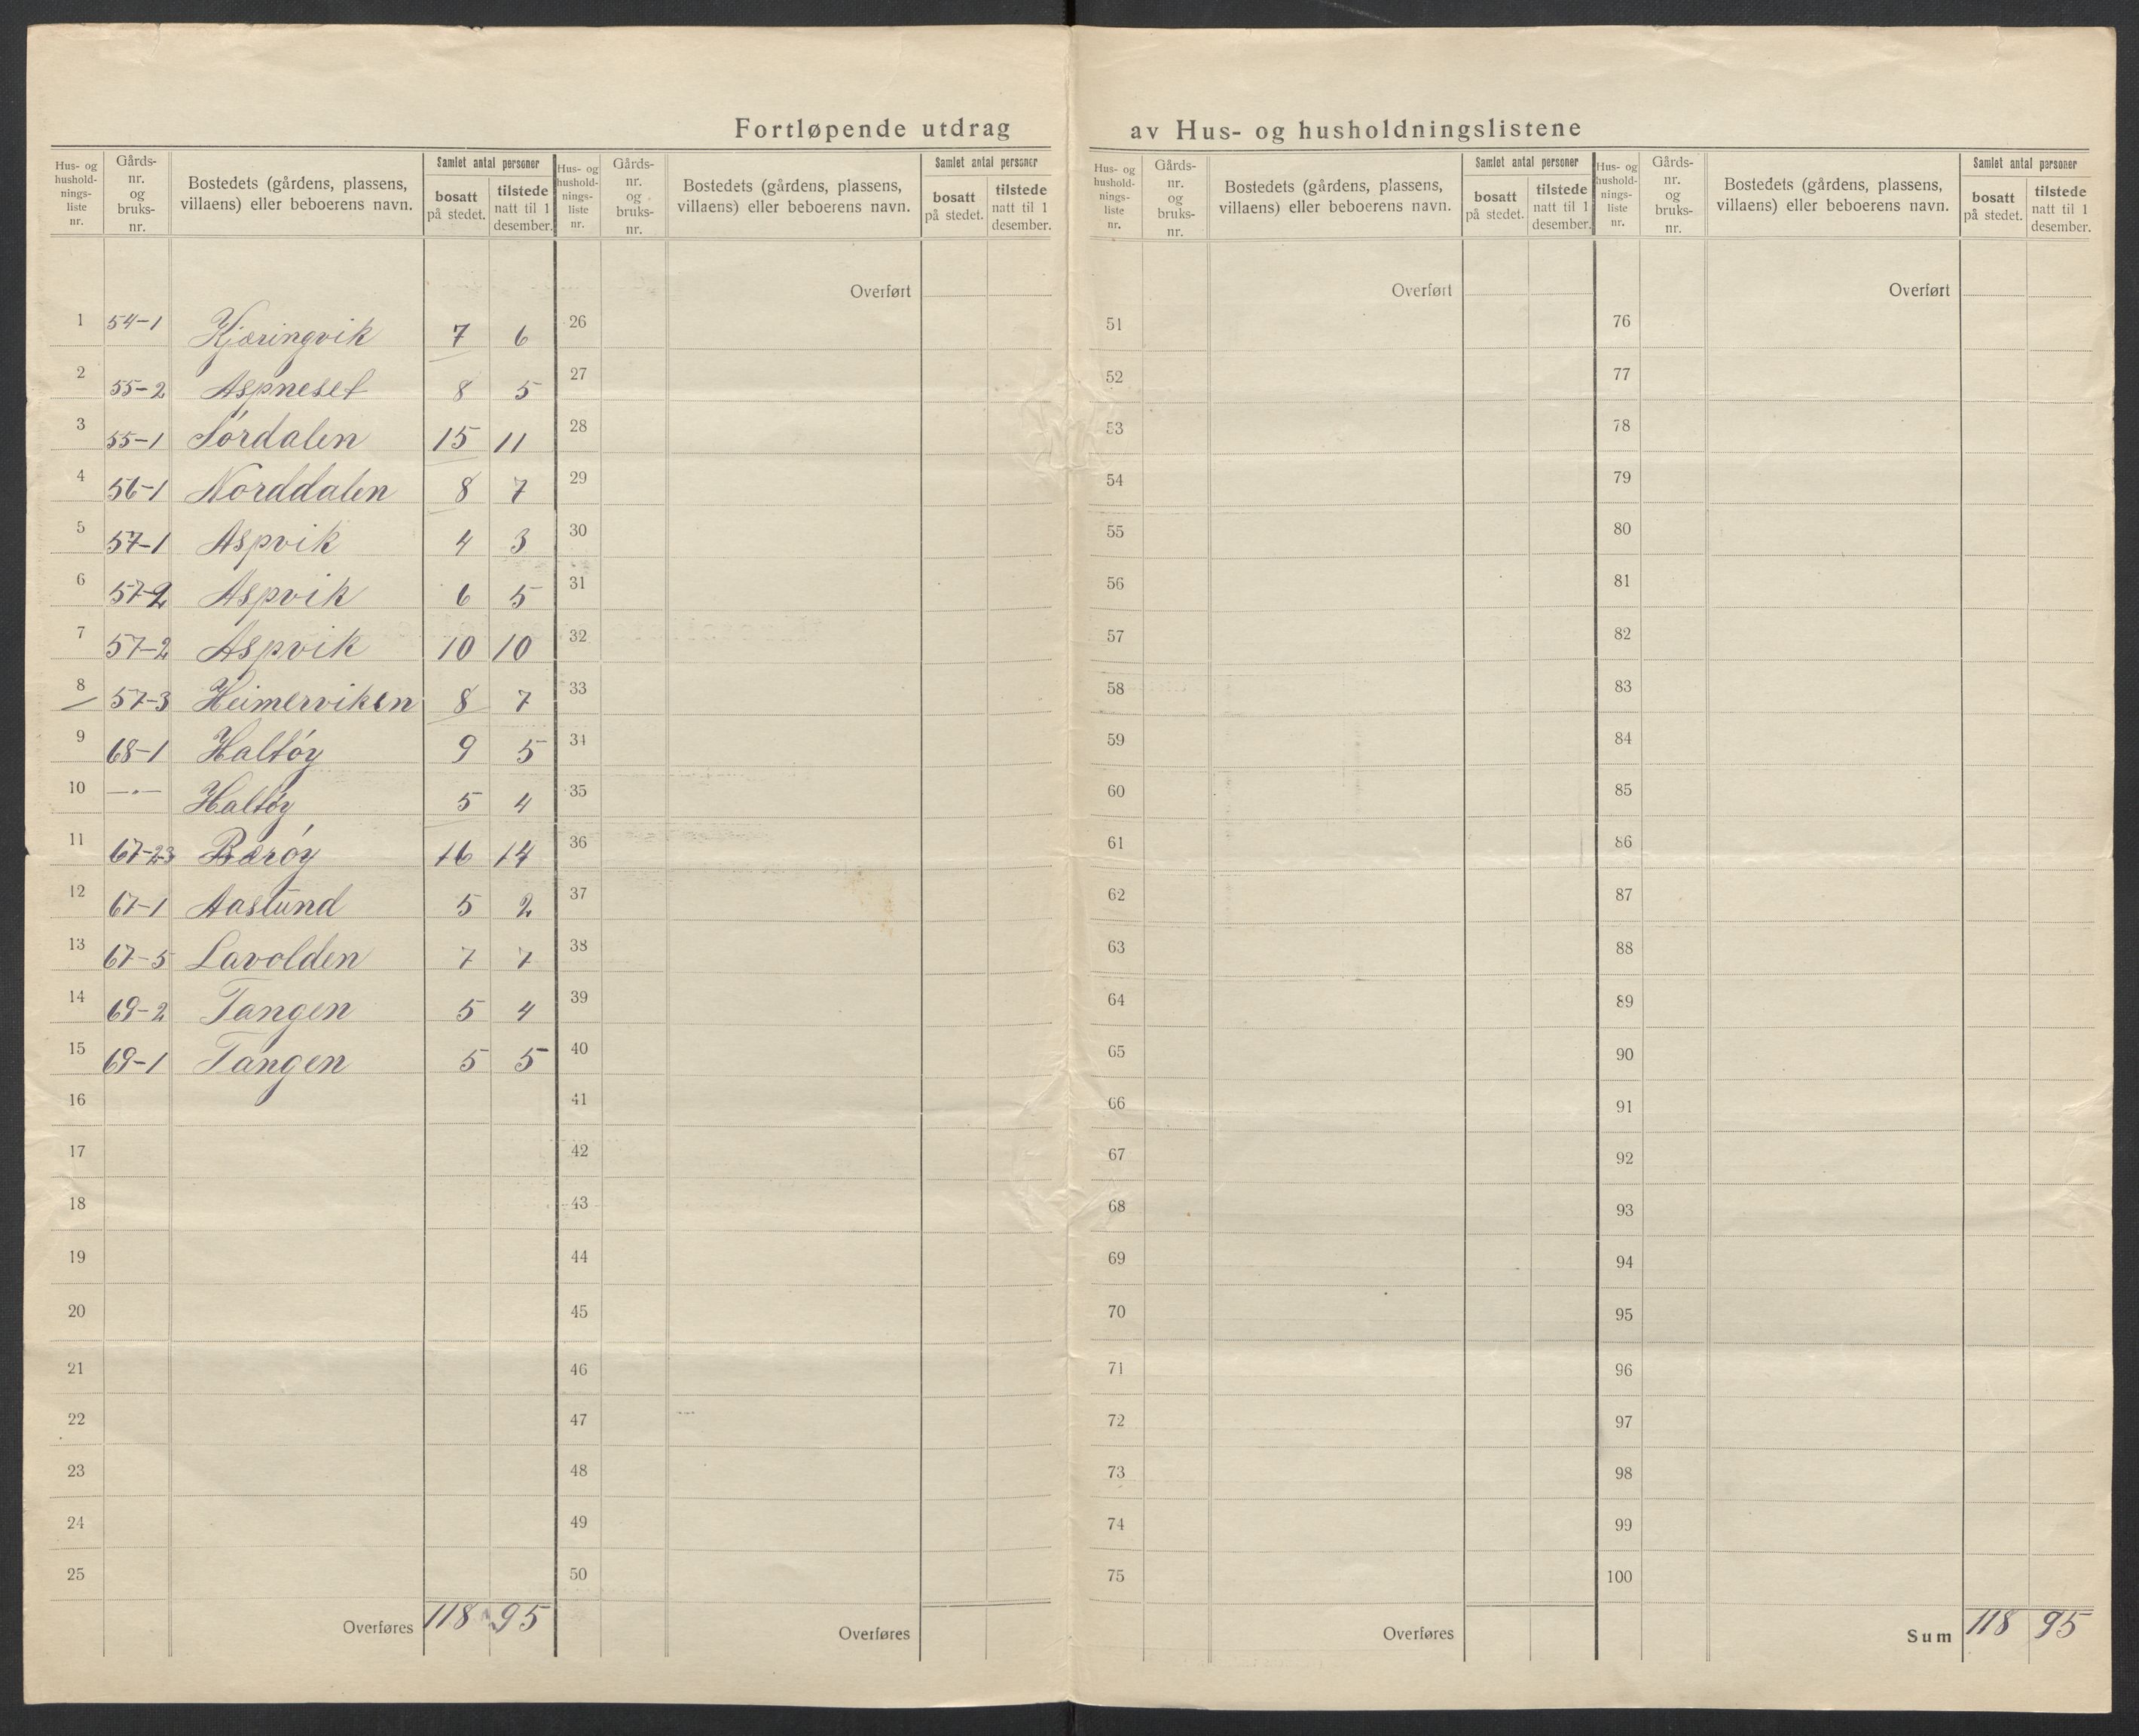 Fortløpende utdrag av Hus- og husholdningslistene
Hus- og hushold- nings- liste nr. | Gårds- nr. og bruks- nr. | Bostedets (gårdens, plassens, villaens) eller beboerens navn. | Samlet antal personer | bosatt på stedet. | tilstede natt til 1 desember.
1 54-1 Kjæringvik 7 6
2 55-2 Aspneset 8 5
3 55-1 Sørdalen 15 11
4 56-1 Norddalen 8 7
5 57-1 Aspvik 4 3
6 57-2 Aspvik 6 5
7 57-2 Aspvik 10 10
8 57-3 Heimerviken 8 7
9 68-1 Haltøy 9 5
10 —·— Haltøy 5 4
11 67-23 Bærøy 16 14
12 67-1 Aaslund 5 2
13 67-5 Lavolden 7 7
14 69-2 Tangen 5 4
15 69-1 Tangen 5 5
16
17
18
19
20
21
22
23
24
25
Overføres 118 95
Hus- og hushold- nings- liste nr. | Gårds- nr. og bruks- nr. | Bostedets (gårdens, plassens, villaens) eller beboerens navn. | Samlet antal personer | bosatt på stedet. | tilstede natt til 1 desember.
Overført
26
27
28
29
30
31
32
33
34
35
36
37
38
39
40
41
42
43
44
45
46
47
48
49
50
Overføres
Hus- og hushold- nings- liste nr. | Gårds- nr. og bruks- nr. | Bostedets (gårdens, plassens, villaens) eller beboerens navn. | Samlet antal personer | bosatt på stedet. | tilstede natt til 1 desember.
Overført
51
52
53
54
55
56
57
58
59
60
61
62
63
64
65
66
67
68
69
70
71
72
73
74
75
Overføres
Hus- og hushold- nings- liste nr. | Gårds- nr. og bruks- nr. | Bostedets (gårdens, plassens, villaens) eller beboerens navn. | Samlet antal personer | bosatt på stedet. | tilstede natt til 1 desember.
Overført
76
77
78
79
80
81
82
83
84
85
86
87
88
89
90
91
92
93
94
95
96
97
98
99
100
Sum 118 95